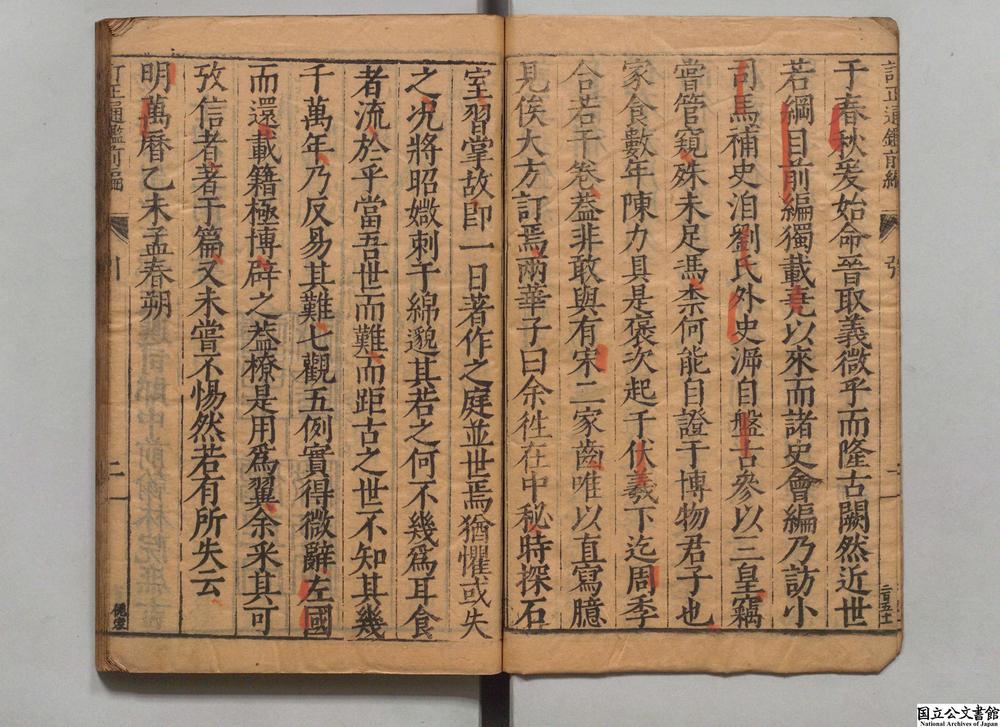 于春秋爰始命晉取義微乎而隆古闕然近世
若綱目前編獨載堯以來而諸史會編乃訪小
司馬補史洎劉氏外史泝自盤古參以三皇竊
嘗管窺殊未足馮柰何能自證于博物君子也
家食數年陳力具是裒次起于伏羲下迄周季
合若干卷葢非敢與有宋二家齒唯以直寫臆
見俟大方訂焉兩華子曰余徃在中秘時探石
室習掌故即一日著作之庭並世焉猶懼或失
之况將昭媺刺于綿邈其若之何不幾爲耳食
者流於乎當吾世而難而距古之世不知其幾
千萬年乃反易其難七觀五例實得微辭左國
而還載籍極博辟之葢橑是用爲翼余采其可
攷信者著于篇又未嘗不惕然若有所失云
明萬曆乙未孟春朔
訂正通鑑前編
二
国立公文書館
National Archives of Japan